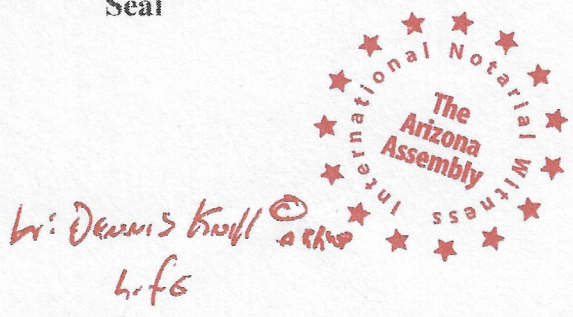 Seal
International Notarial Witness
The
Arizona
Assembly
by: Dennis ©